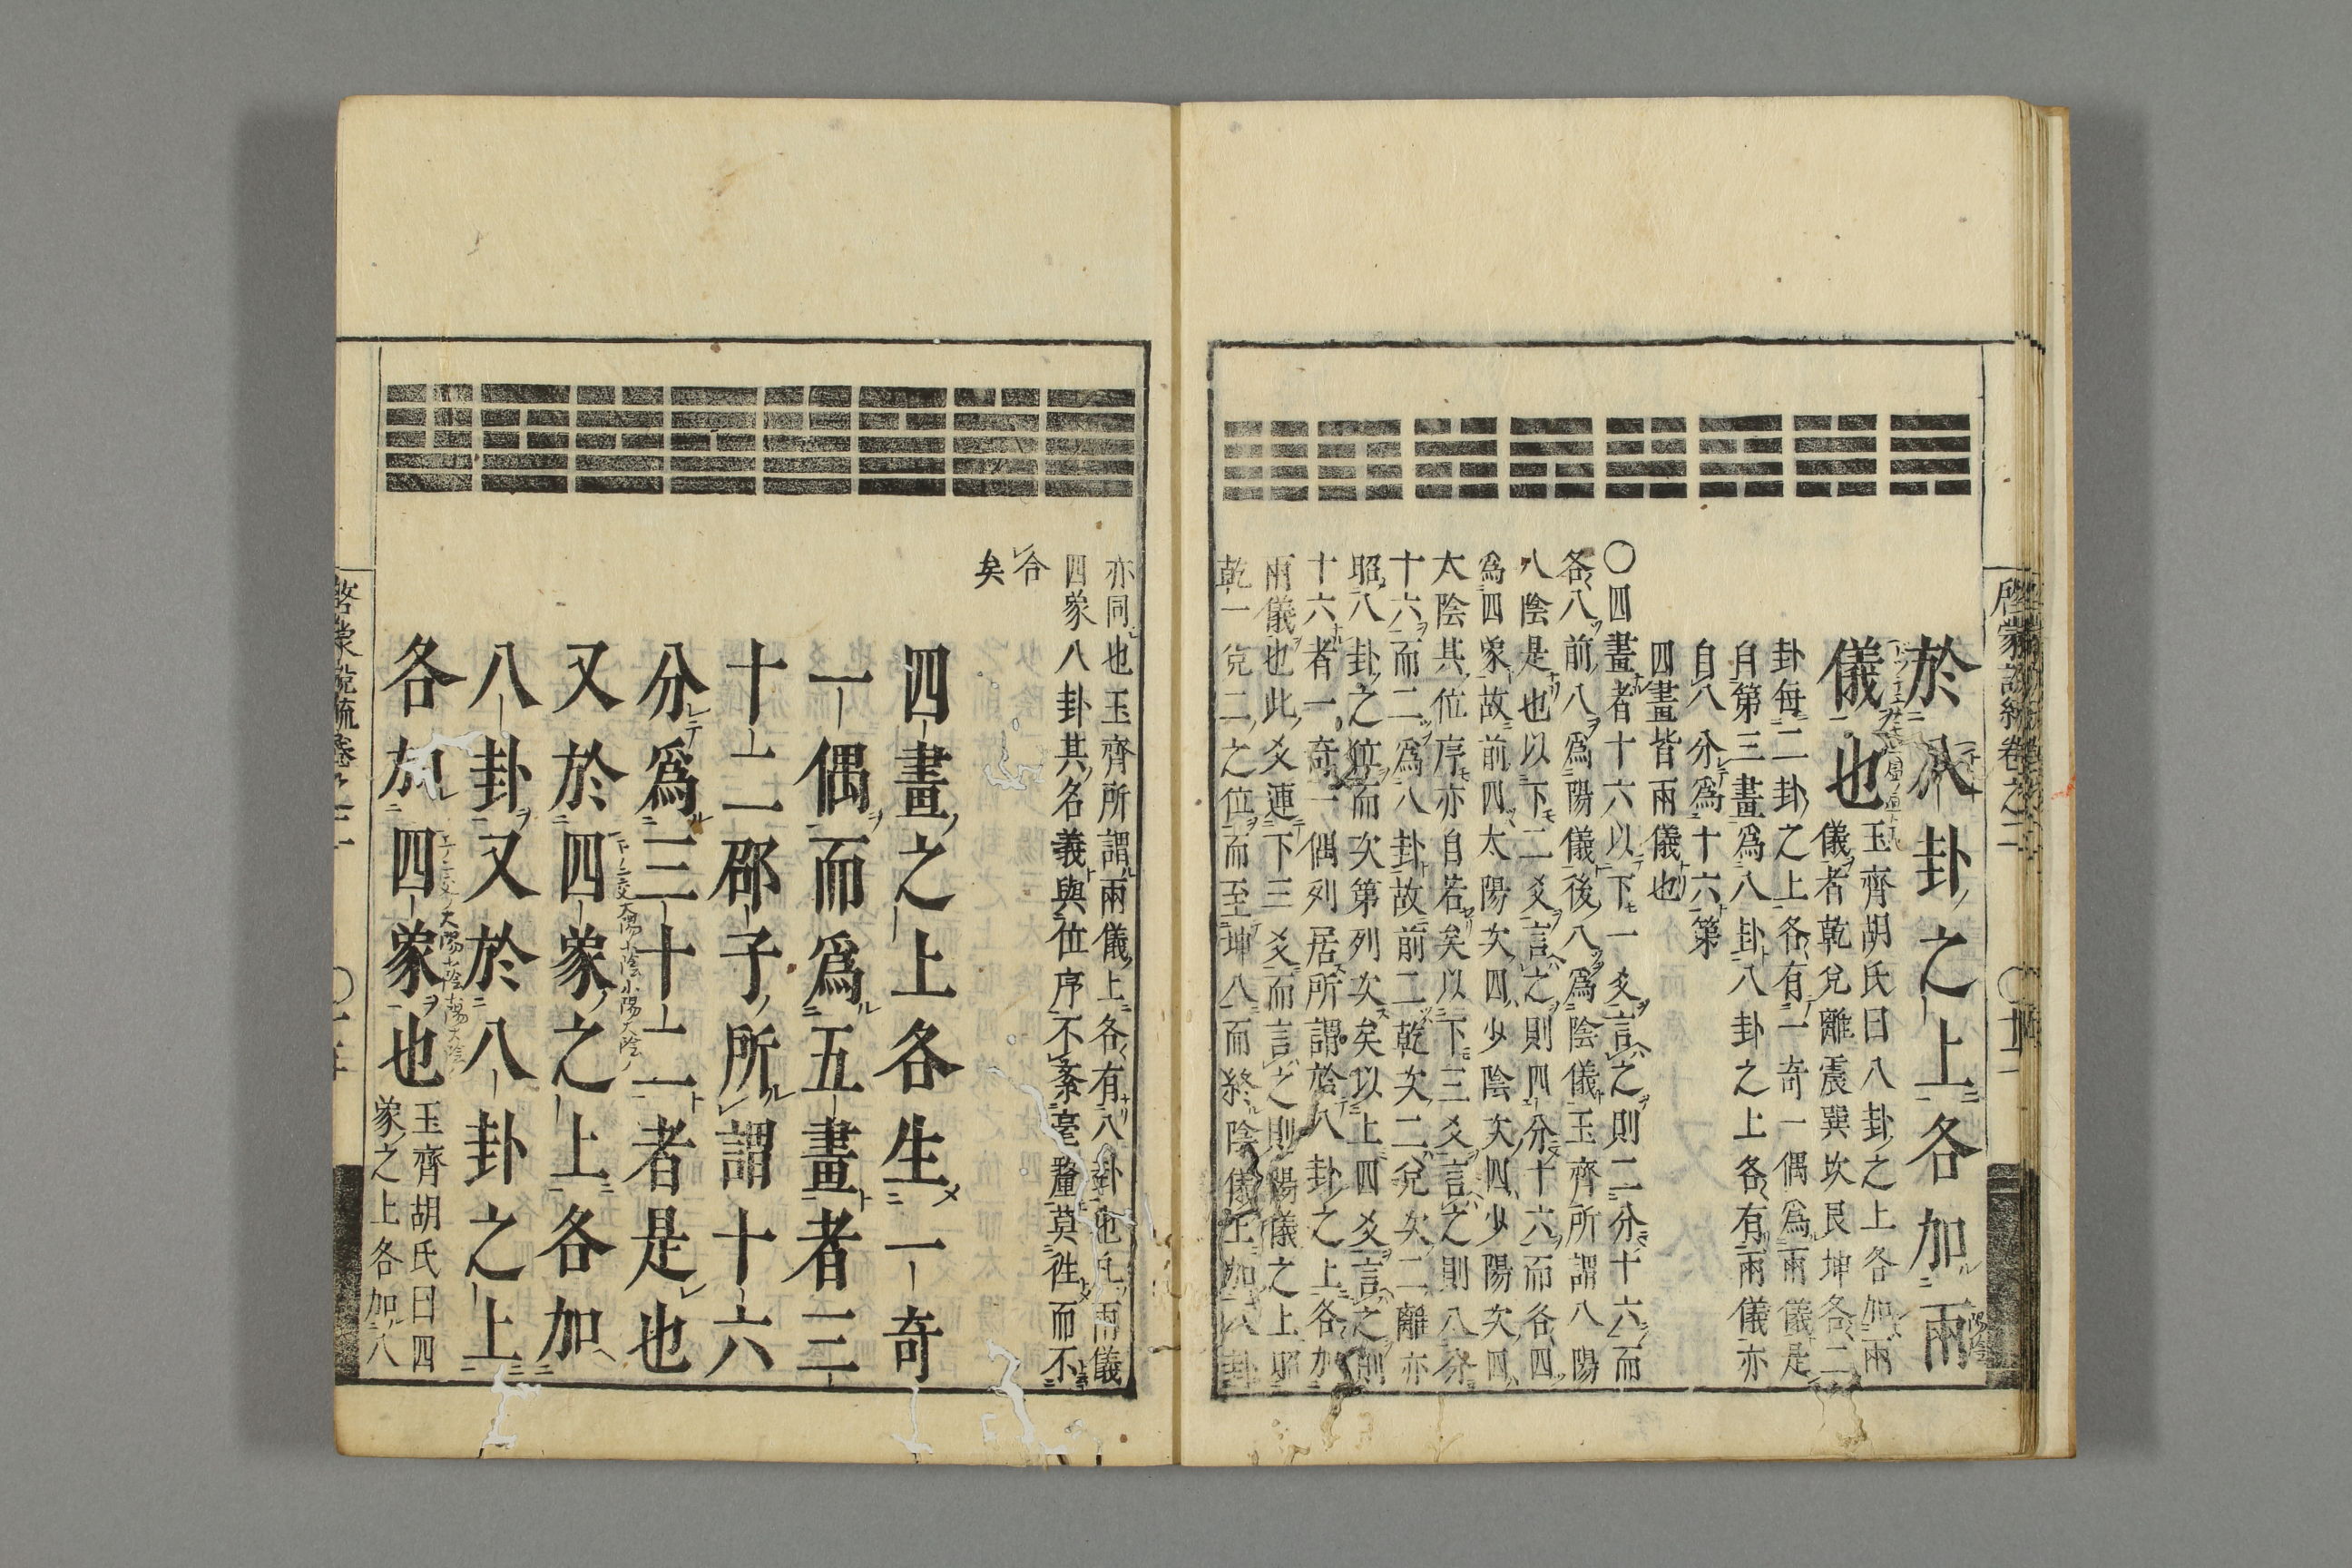 啓蒙説統卷之二
於八卦之上各加兩
儀也
玉齊胡氏曰八卦之上各加兩
儀者乾兌離震巽坎艮坤各二
卦每二卦之上各有一奇一偶爲兩儀是
自第三畫爲八卦八卦之上各有兩儀亦
自八分爲十六第
四畫皆兩儀也
〇四畫者十六以下一爻言之則二分十六而
各八前八爲陽儀後八爲陰儀玉齊所謂八陽
八陰是也以下二爻言之則四分十六而各四
爲四象故前四太陽次四少陰次四少陽次四
太陰其位序亦自若矣以下三爻言之則八分
十六而二爲八卦故前二乾次二兌次二離亦
昭八卦之位而次第列次矣以上四爻言之則
十六者一奇一偶列居所謂於八卦之上各加
兩儀也此爻連下三爻而言之則陽儀之上昭
乾一兌二之位而至坤八而終陰儀上加八卦
亦同也玉齊所謂兩儀上各有八卦也凡兩儀
四象八卦其名義與位序不紊毫釐莫徃而不
合
矣
四畫之上各生一奇
一偶而爲五畫者三
十二邵子所謂十六
分爲三十二者是也
又於四象之上各加
八卦又於八卦之上
各加四象也
玉齊胡氏曰四
象之上各加八